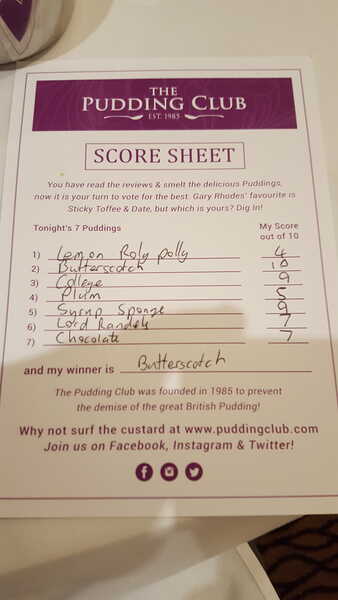 THE
PUDDING CLUB
EST. 1985
SCORE SHEET
You have read the reviews & smelt the delicious Puddings,
now it is your turn to vote for the best. Gary Rhodes' favourite is
Sticky Toffee & Date, but which is yours? Dig In!
Tonight's 7 Puddings My Score out of 10
1) Lemon Roly polly 4
2) Butterscotch 10
3) College 9
4) Plum 5
5) Syrup Sponge 9
6) Lord Randels 7
7) Chocolate 7
and my winner is Butterscotch
The Pudding Club was founded in 1985 to prevent
the demise of the great British Pudding!
Why not surf the custard at www.puddingclub.com
Join us on Facebook, Instagram & Twitter!